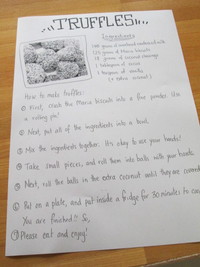 TRUFFLES
Ingredients
100 grams of sweetened condensed milk
125 grams of Maria biscuits
1 tablespoon of cocoa
1 teaspoon of vanilla
(+ extra coconut)
How to make truffles:
① First, crush the Maria biscuits into a fine powder. Use
a rolling pin!
② Next, put all of the ingredients into a bowl.
③ Mix the ingredients together. It's okay to use your hands!
④ Take small pieces, and roll them into balls with your hands.
⑤ Next, roll the balls in the extra coconut until they are covered
⑥ Put on a plate, and put inside a fridge for 30 minutes to
You are finished!! So,
⑦ Please eat and enjoy!